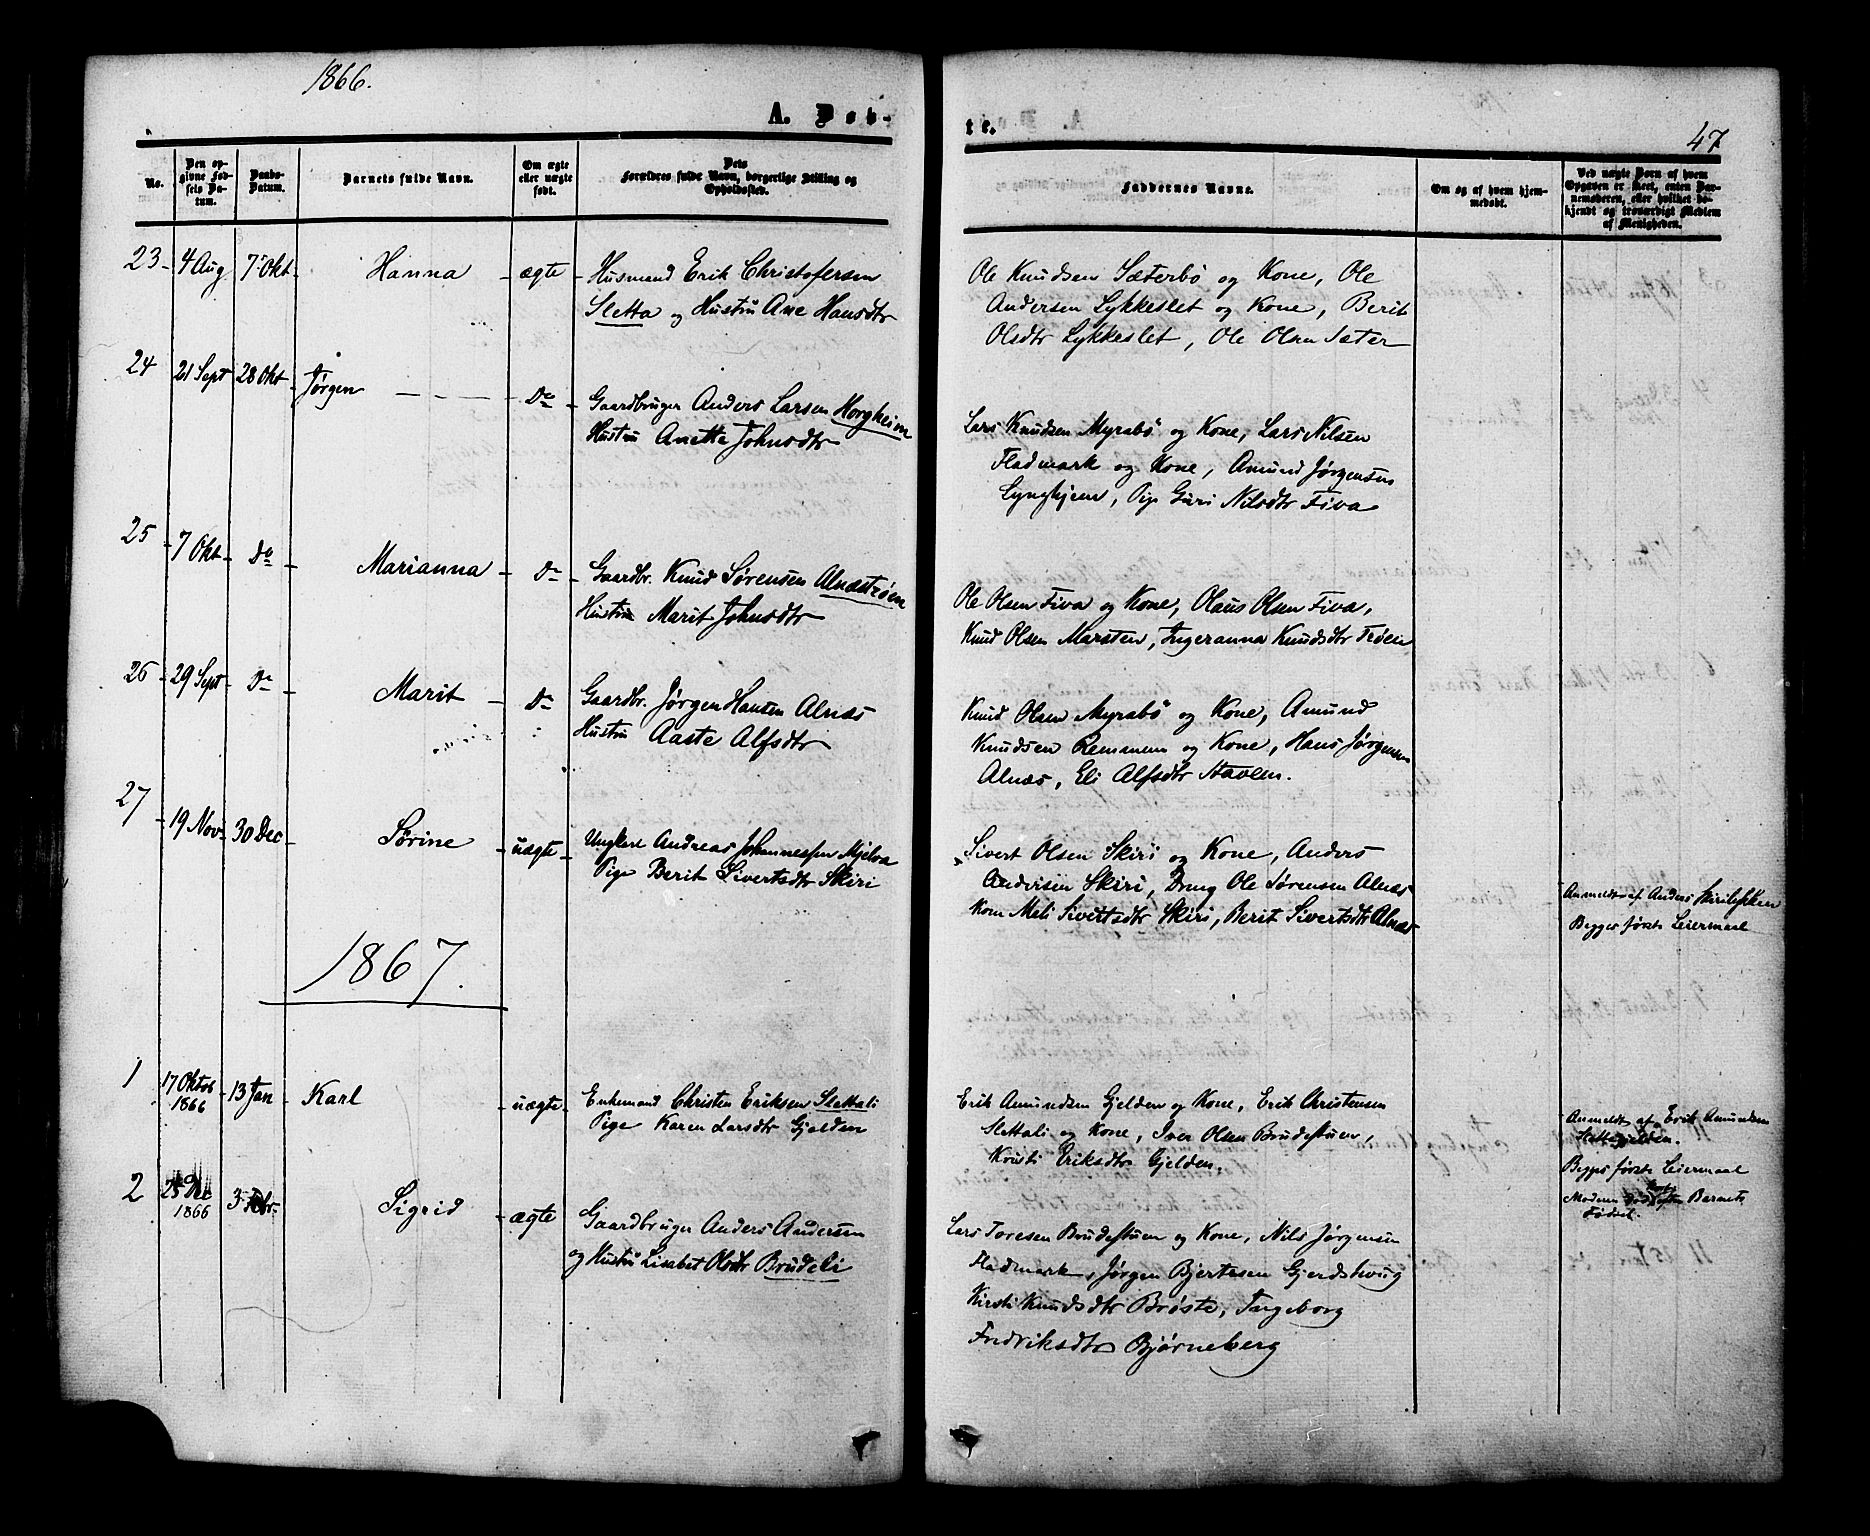 1866.
A. Døb-
te.
47
No.
Den op-
givne Fød-
sels Da-
tum.
Daabs-
Datum.
Barnets fulde Navn.
Om ægte
eller uægte
født.
Dets
Forældres fulde Navn, borgerlige Stilling og
Opholdssted.
Faddernes Navne.
Om og af hvem hjem-
medøbt.
Ved uægte Børn af hvem
Opgaven er skeet, enten Bar-
nemoderen, eller hvilket be-
kjendt og troværdigt Medlem
af Menigheden.
23 4 Aug 7 Okt Hanna ægte Husmand Erik Christofersen
Sletta og Hustru Ane Hansdtr
Ole Knudsen Sæterbö og Kone, Ole
Andersen Lykkeslet og Kone, Berit
Olsdtr Lykkeslet, Ole Olsen Sæter
24 21 Sept 28 Okt Jørgen Do Gaardbruger Anders Larsen Horgheim
Hustru Anette Johnsdtr
Lars Knudsen Myrabö og Kone, Lars Nilsen
Fladmark og Kone, Amund Jørgensen
Lyngheim, Pige Guri Nilsdtr Fiva
25 7 Okt Do Marianna Do Gaardbr. Knud Sørensen Alnæsrøen
Hustru Marit Johnsdtr
Ole Olsen Fiva og Kone, Olaus Olsen Fiva,
Knud Olsen Marsten, Ingeranna Knudsdtr
26 29 Sept Do Marit Do Gaardbr. Jørgen Hansen Alnæs
Hustru Aaste Alfsdtr
Knud Olsen Myrabö og Kone, Amund
Knudsen Remmem og Kone, Hans Jørgensen
Alnæs, Eli Alfsdtr Stavlen.
27 19 Nov 30 Dec Sørine uægte Ungkarl Andreas Johannessen Mjelva
Pige Berit Sivertsdtr Skiri
Sivert Olsen Skiri og Kone, Anders
Andersen Skiri, Dreng Ole Sørensen Alnæs
Kone Meli Sivertsdtr Skiri, Berit Sivertsdtr Alnæs
Anmeldt af Anders Skirilykken
Begges første Leiermaal
1867.
1 17 Oktob 13 Jan Karl uægte Enkemand Christen Eriksen Slettali
1866 Pige Karen Larsdtr Gjelden
Erik Amundsen Gjelden og Kone, Erik Christensen
Slettali og Kone, Iver Olsen Brudestuen,
Kristi Eriksdtr Gjelden.
Anmeldt af Erik Amundsen
Begges første Leiermaal
Moderen død kort efter Barnets
Fødsel.
2 25 Dec 3 Febr. Sigrid ægte Gaardbruger Anders Andersen
1866 og Hustru Lisabet Olsdtr Brudeli
Lars Toresen Brudestuen og Kone, Nils Jørgensen
Fladmark, Jørgen Bjertesen Gjerdshoug
Kirsti Knudsdtr Brøste, Ingeborg
Fredriksdtr Bjørneberg